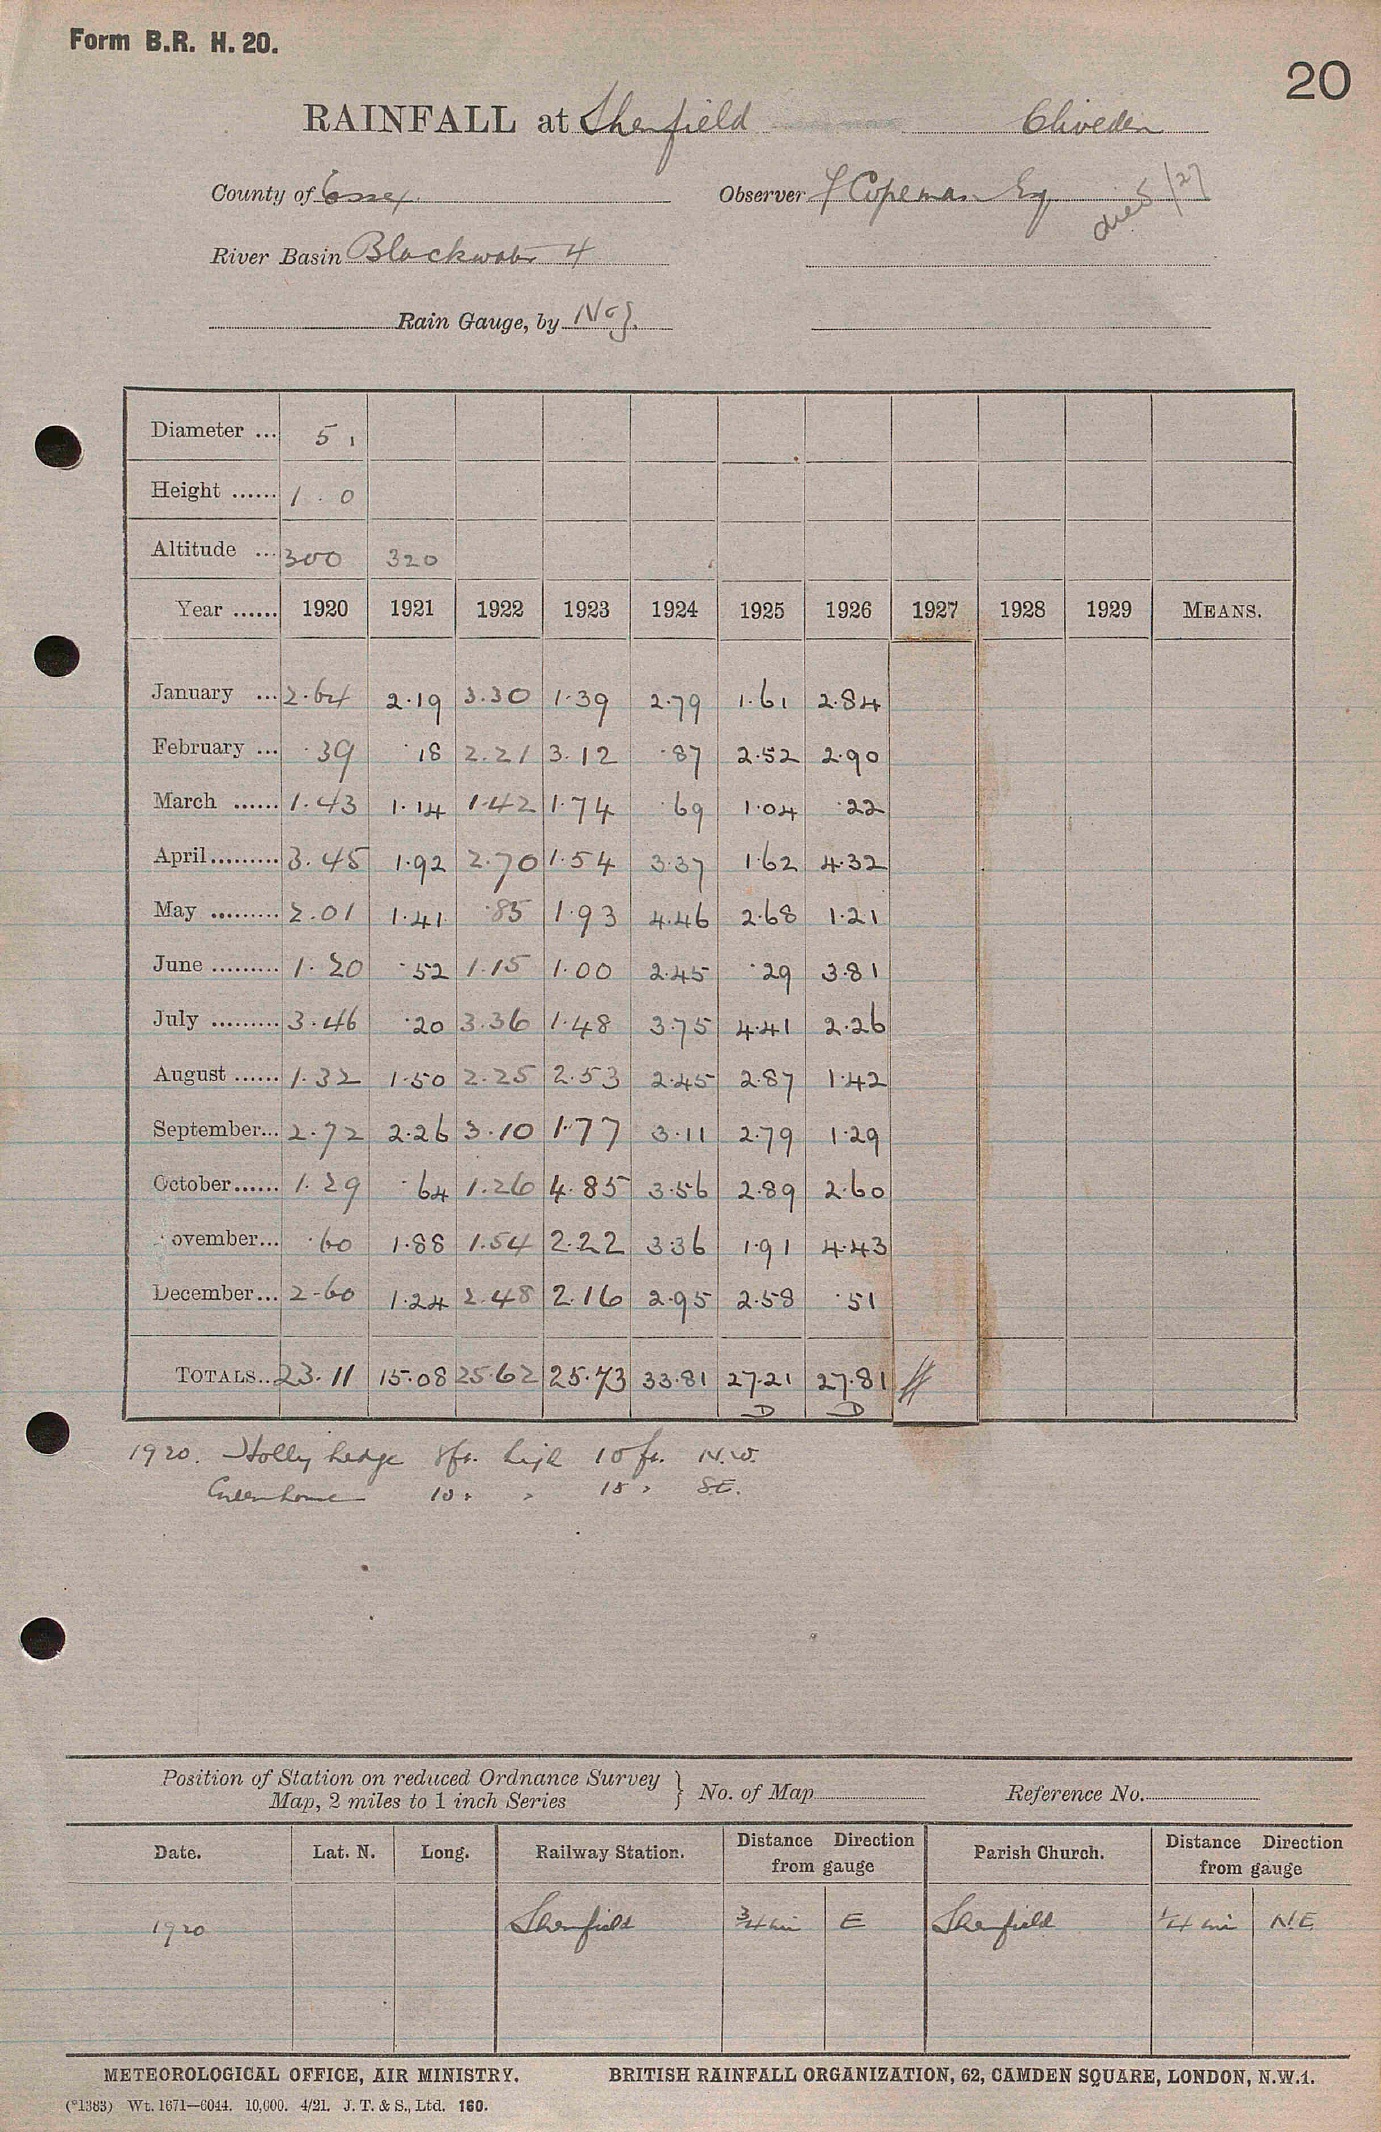 Form B.R. H. 20.
20
RAINFALL at Shenfield Cliveden
County of Essex Observer F Copeman Esq died /27
River Basin Blackwater 4
Rain Gauge, by Neg.
Diameter ... 5
Height ...... 1 . 0
Altitude ... 300 320
Year ...... 1920 1921 1922 1923 1924 1925 1926 1927 1928 1929 MEANS.
January ... 2.64 2.19 3.30 1.39 2.79 1.61 2.84
February ... .39 .18 2.21 3.12 .87 2.52 2.90
March ...... 1.43 1.14 1.42 1.74 .69 1.04 .22
April ......... 3.45 1.92 2.70 1.54 3.37 1.62 4.32
May ......... 2.01 1.41 .85 1.93 4.46 2.68 1.21
June ......... 1.20 .52 1.15 1.00 2.45 .29 3.81
July ......... 3.46 .20 3.36 1.48 3.75 4.41 2.26
August ...... 1.32 1.50 2.25 2.53 2.45 2.87 1.42
September... 2.72 2.26 3.10 1.77 3.11 2.79 1.29
October...... 1.29 .64 1.26 4.85 3.56 2.89 2.60
ovember... .60 1.88 1.54 2.22 3.36 1.91 4.43
December... 2.60 1.24 2.48 2.16 2.95 2.58 .51
TOTALS.. 23.11 15.08 25.62 25.73 33.81 27.21 27.81
D D
1920. Holly hedge 8ft. high 10 ft. N.W.
Greenhouse 10 " " 15 " S.E.
Position of Station on reduced Ordnance Survey Map, 2 miles to 1 inch Series } No. of Map Reference No.
Date. Lat. N. Long. Railway Station. Distance Direction from gauge Parish Church. Distance Direction from gauge
1920 Shenfield ¾ mi E Shenfield ¼ mi N.E.
METEOROLOGICAL OFFICE, AIR MINISTRY. BRITISH RAINFALL ORGANIZATION, 62, CAMDEN SQUARE, LONDON, N.W.1.
(*1383) Wt. 1671—6044. 10,000. 4/21. J. T. & S., Ltd. 160.